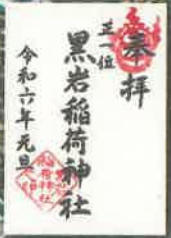 奉拝
正一位
黒岩稲荷神社
令和六年元旦